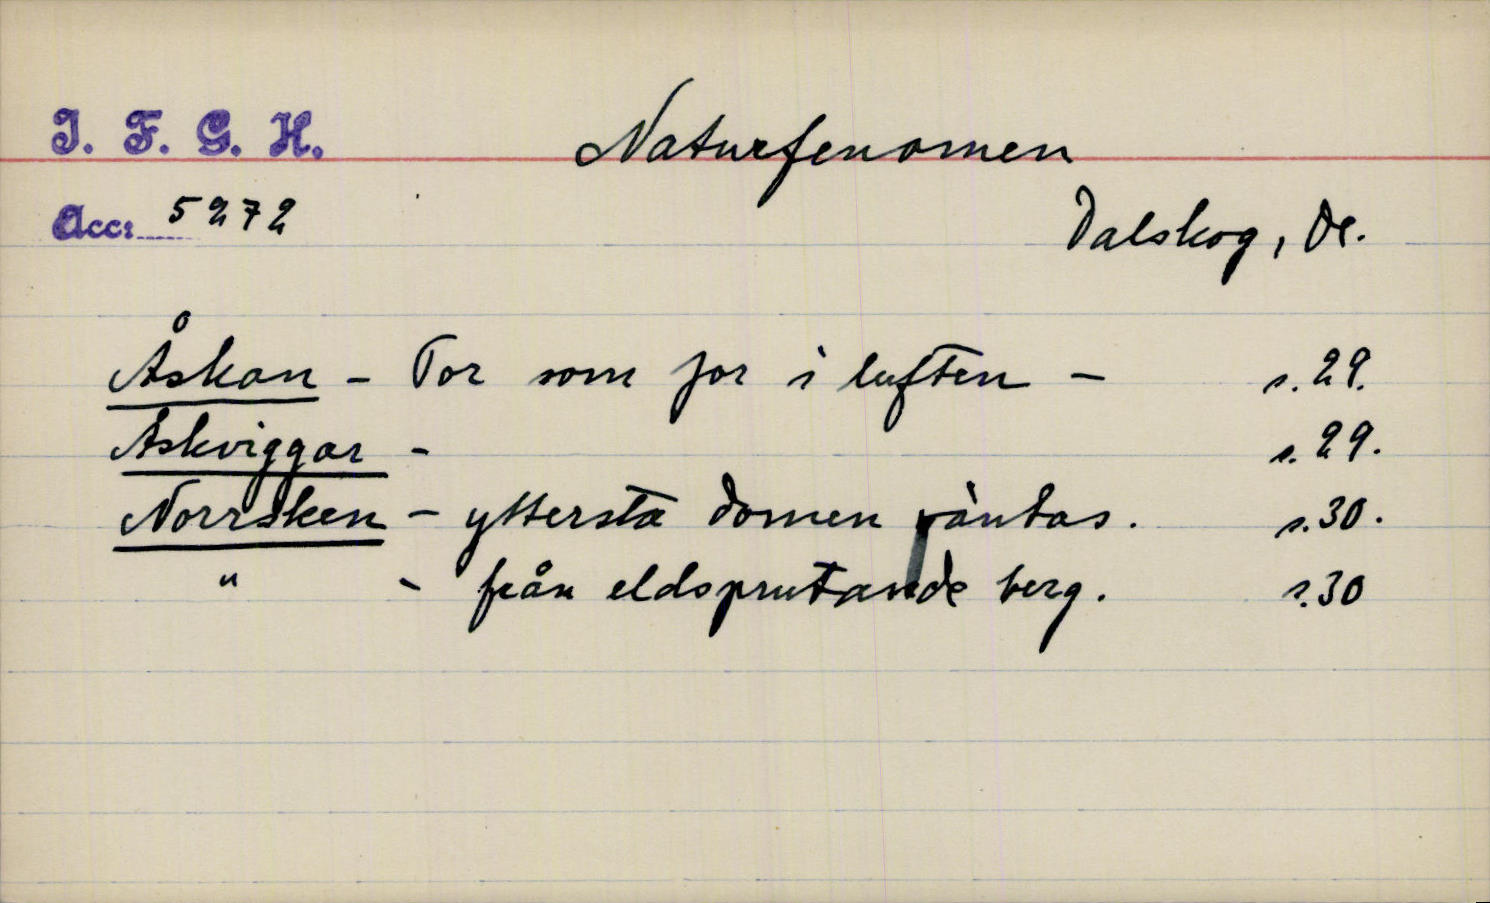 I. F. G. H.
Naturfenomen
Acc: 5272
Dalskog, Dl.
Åskan - Tor som for i luften - s. 29.
Åskviggar - s. 29.
Norrsken - yttersta domen väntas. s. 30.
" - från eldsprutande berg. s. 30